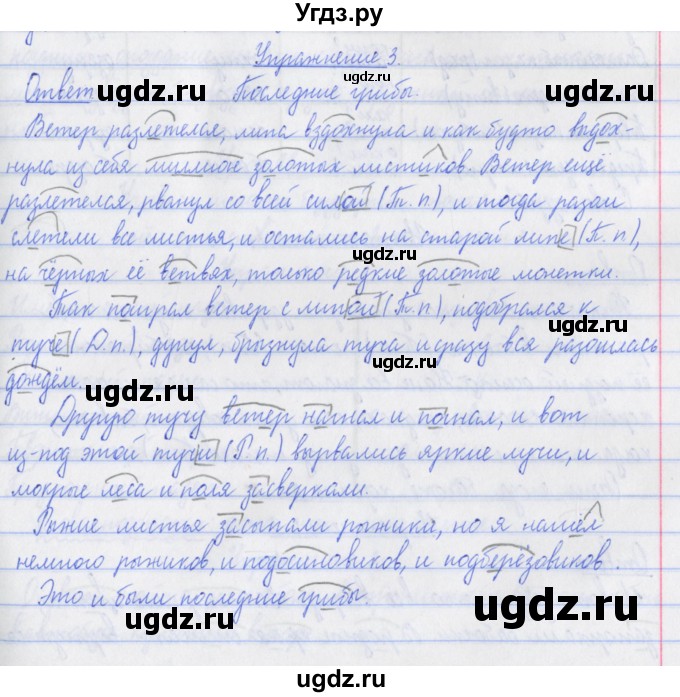 Угдз.ру
Упражнение 3.
ugdz.ru
Ответ ugdz.ru Последние грибы. ugdz.ru
Ветер разлетелся, липа вздохнула и как будто выдох-
нула из себя миллион золотых листиков. Ветер ещё
разлетелся, рванул со всей силой (Т.п), и тогда разом
ugdz.ru ugdz.ru ugdz.ru
слетели все листья, и остались на старой липе (П.п),
на чёрных её ветвях, только редкие золотые монетки.
ugdz.ru
Так поиграл ветер с липой (Т.п), подобрался к
ugdz.ru
туче (Д.п.), дунул, брызнула туча и сразу вся разошлась
дождём.
ugdz.ru ugdz.ru
Другую тучу ветер нагнал и погнал, и вот
из-под этой тучи (Р.п.) вырвались яркие лучи, и
ugdz.ru
мокрые леса и поля засверкали.
ugdz.ru ugdz.ru
Рыжие листья засыпали рыжики, но я нашёл
немного рыжиков, и подосиновиков, и подберёзовиков.
ugdz.ru
Это и были последние грибы.
ugdz.ru ugdz.ru
ugdz.ru
Угдз.ру